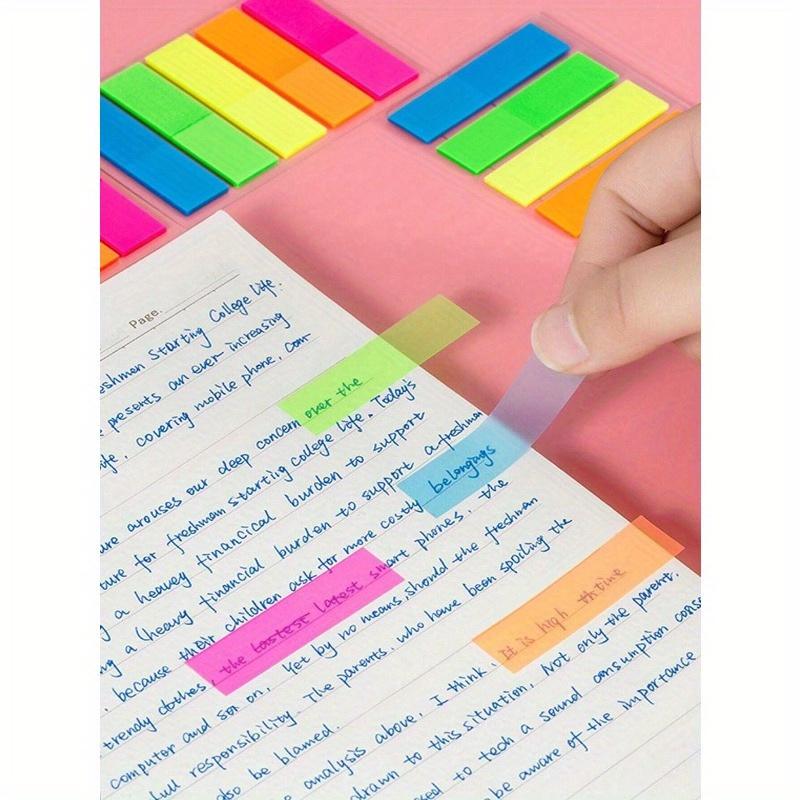 Page.
eshman starting College Life.
e presents an ever increasing
ife, covering mobile phone, com
ure arouses our deep concern over the
ure for freshman starting college life. Today's
g a heavey financical burden to support
ng a (heavy financial burden to support a freshman
, because their children ask for more costly belongings
trendy clothes, the lastest latest smart phones, the
computer and so on, Yet by no means, should the freshman
full responsibility. The parents, who have been spoiling the
also be blamed.
e analysis above, I think, It is high th time
drawn to this situation, Not only the parent,
osed to tech a sound consumption conse
be aware of the importance